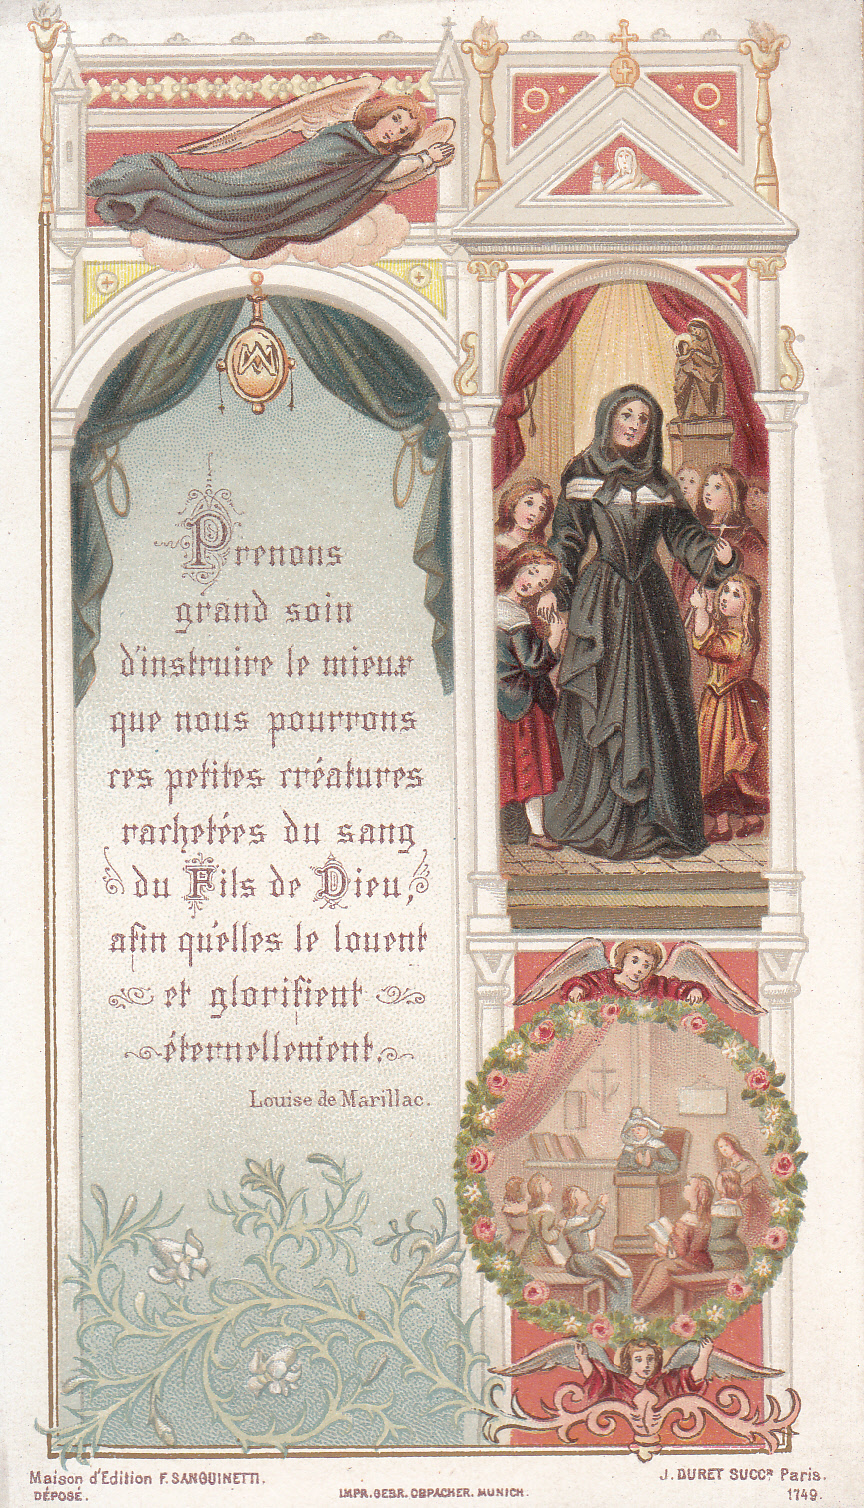 Prenons
grand soin
d'instruire le mieux
que nous pourrons
ces petites créatures
rachetées du sang
du Fils de Dieu,
afin qu'elles le louent
et glorifient
éternellement.
Louise de Marillac.
Maison d'Edition F. SANGUINETTI.
DÉPOSÉ.
IMPR. GEBR. OBPACHER. MUNICH.
J. DURET SUCCR Paris.
1749.